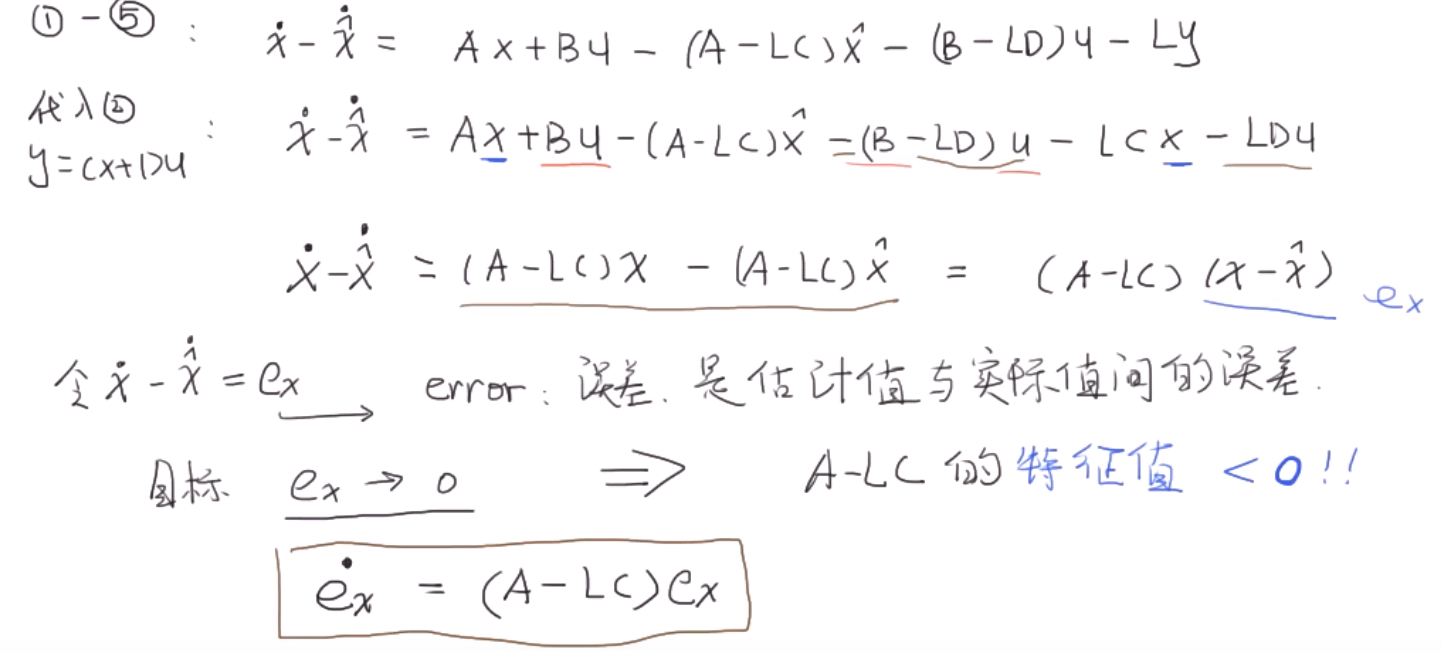 ① - ⑤ : ẋ - x̂̇ = Ax + Bu - (A - LC)x̂ - (B - LD)u - Ly
代入②
y = Cx + Du : ẋ - x̂̇ = Ax + Bu - (A - LC)x̂ - (B - LD)u - LCx - LDu
ẋ - x̂̇ = (A - LC)x - (A - LC)x̂ = (A - LC)(x - x̂) eₓ
令 ẋ - x̂̇ = eₓ → error: 误差. 是估计值与实际值间的误差.
目标 eₓ → 0 ⇒ A-LC 的特征值 < 0!!
ėₓ = (A - LC)eₓ